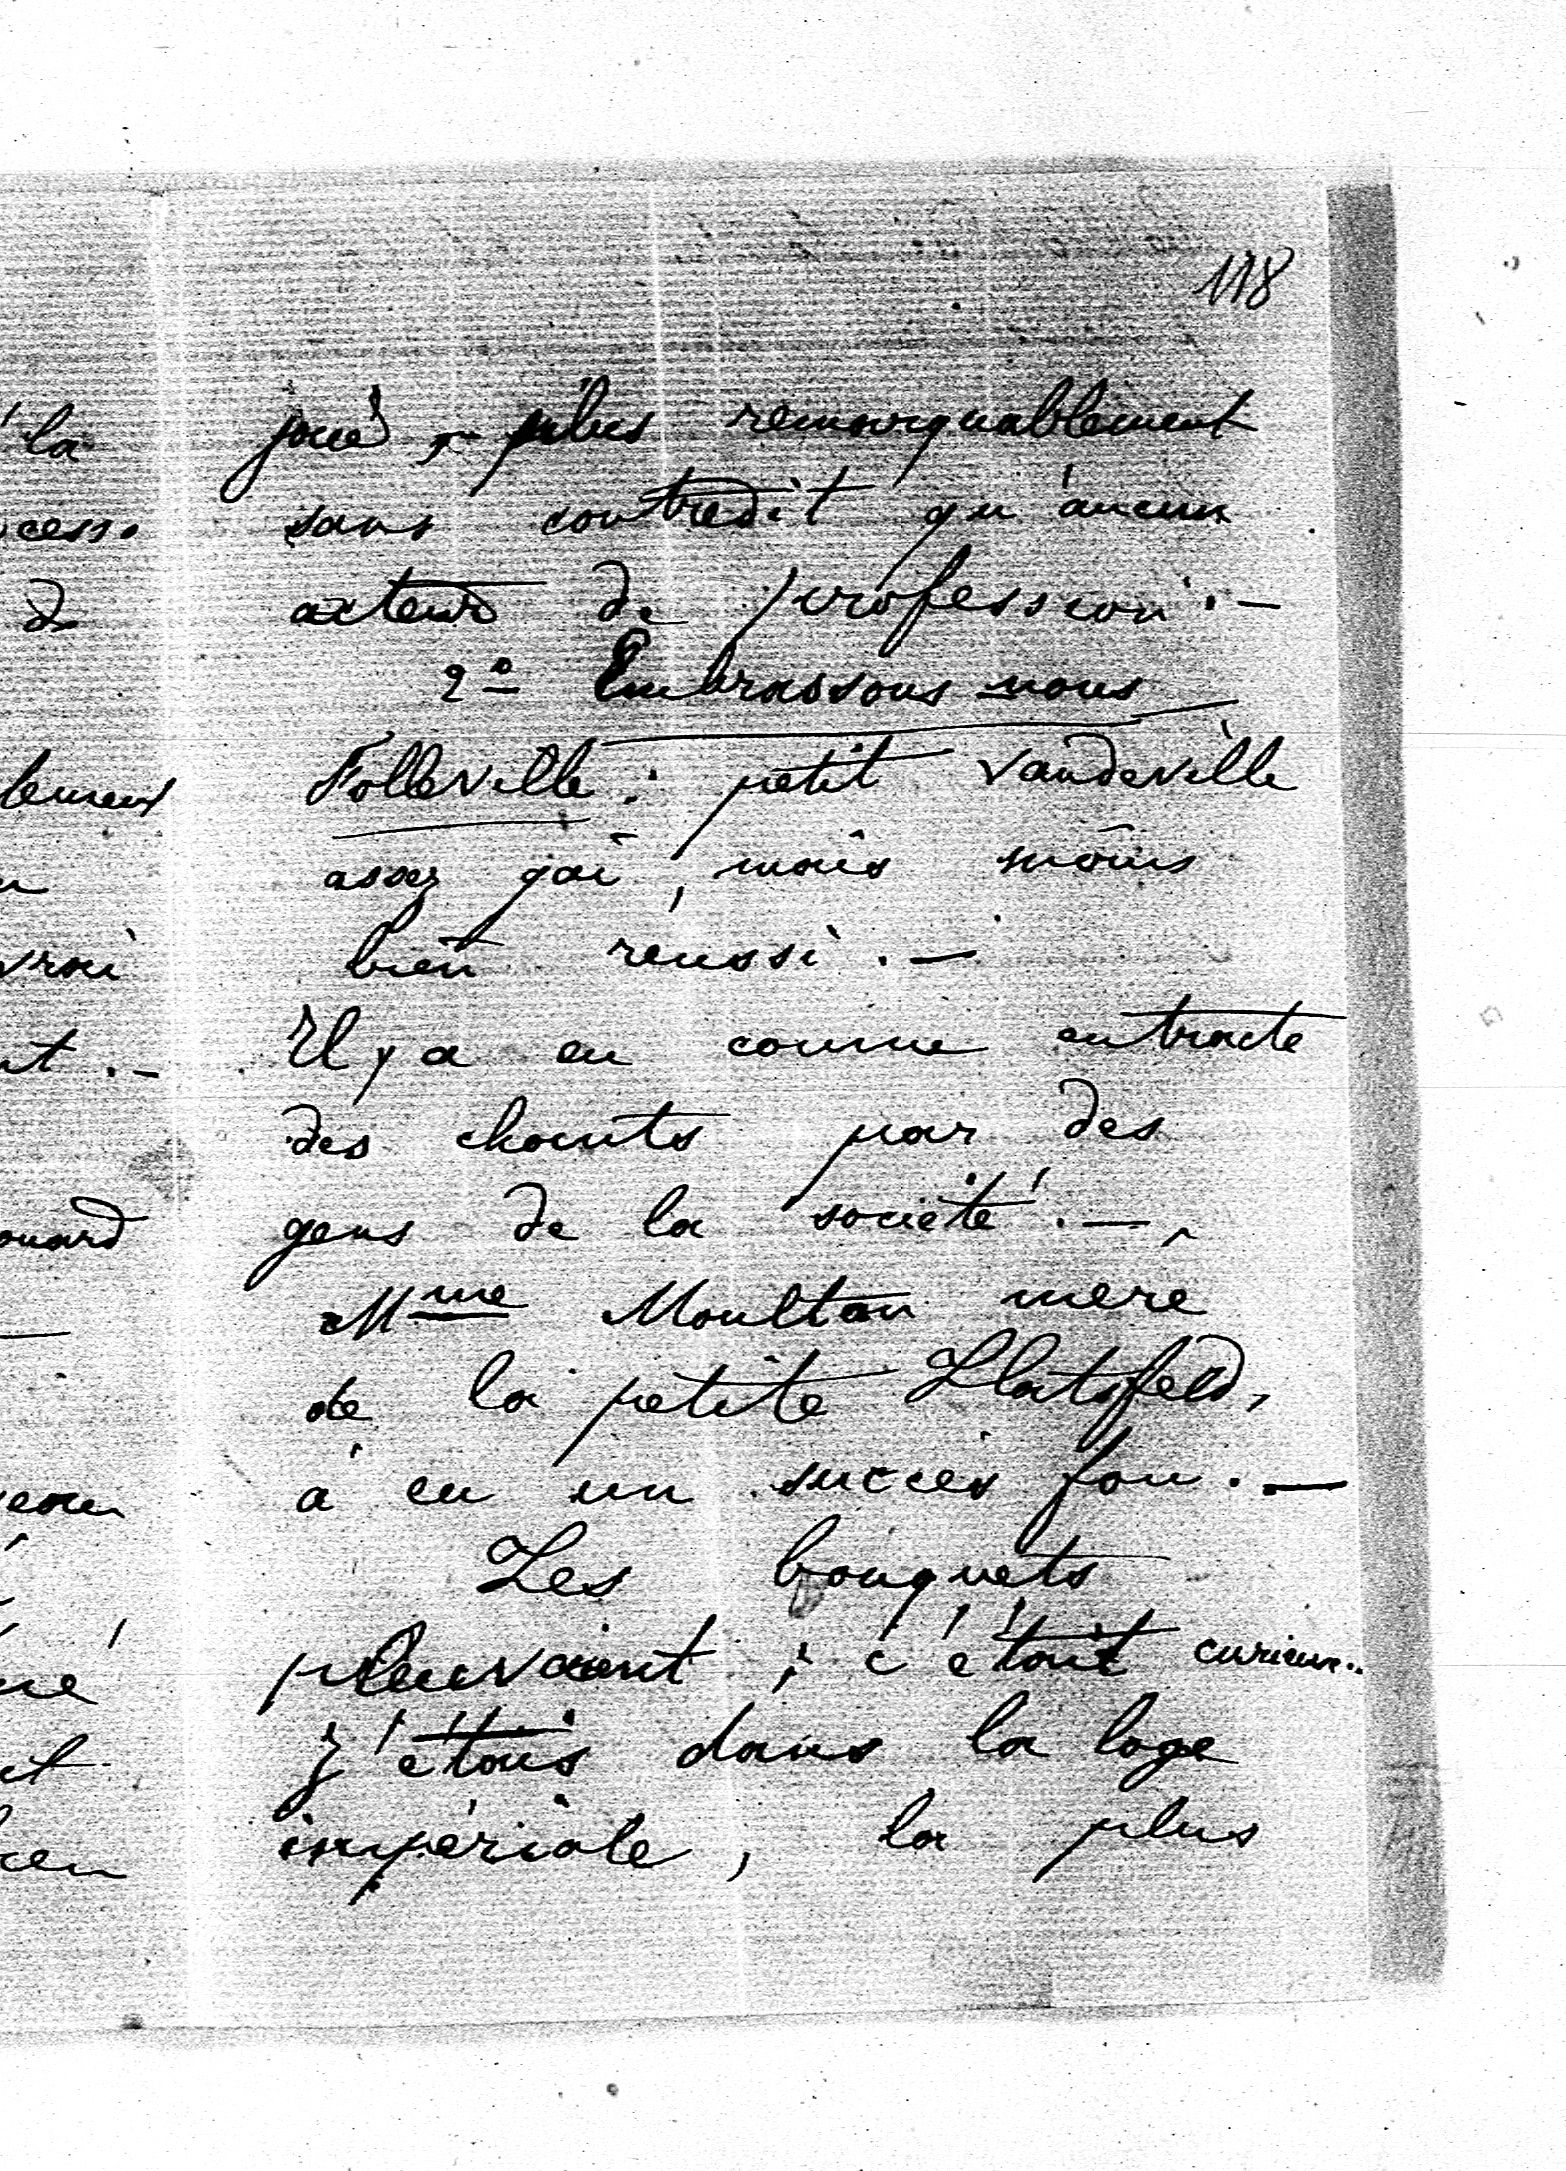 118
joué, plus remarquablement
sans contredit qu'aucun
acteur de profession. —
2º Embrassons nous
Folleville : petit vaudeville
assez gai, mais moins
bien réussi. —
Il y a eu comme entracte
des chants par des
gens de la société. —
Mme Moulton mère
de la petite Hatzfeld,
a eu un succès fou. —
Les bouquets
pleuvaient ; c'était curieux..
J'étais dans la loge
impériale, la plus